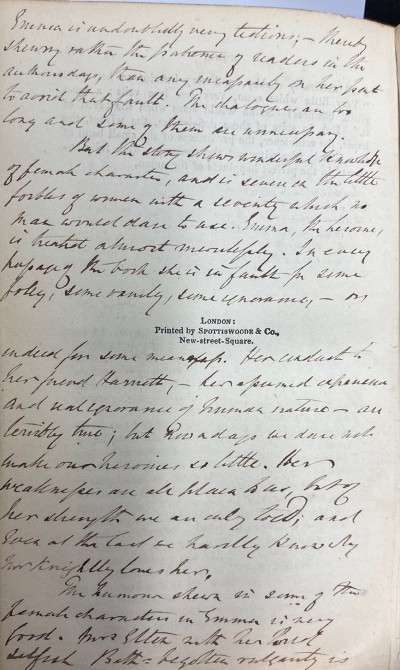 Emma is undoubtedly very tedious; – thereby
shewing rather the patience of readers in the
authoress days, than any incapacity on her part
to avoid that fault. The dialogues are too
long and some of them are unnecessary.
But the story shews wonderful knowledge
of female character, and is severe on the little
foibles of women with a severity which no
man would dare to use. Emma, the heroine,
is treated almost mercilessly. In every
passage of the book she is in fault for some
folly, some vanity, some ignorance, – or
LONDON:
Printed by SPOTTISWOODE & Co.,
New-street-Square.
indeed for some meanness. Her conduct to
her friend Harriett, – her assumed experience
and real ignorance of human nature – are
terribly true; but nowadays we dare not
make our heroines so little. Her
weaknesses are all plain to us, but of
her strength we are only told; and
even at the last we hardly know why
Mr Knightley loves her.
The humour shewn in some of the
female characters in Emma is very
good. Mrs Elton with her
selfish Bath = begotten vulgarity is